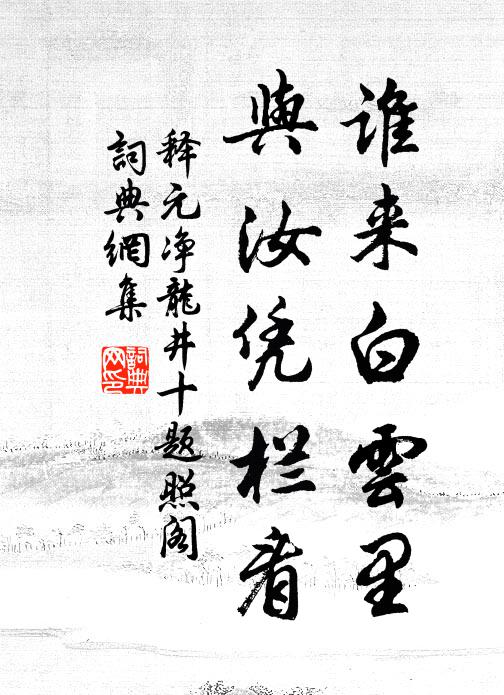 誰来白雲里
與汝凭栏看
释元净龍井十题照阁
詞典網集
詞典网印